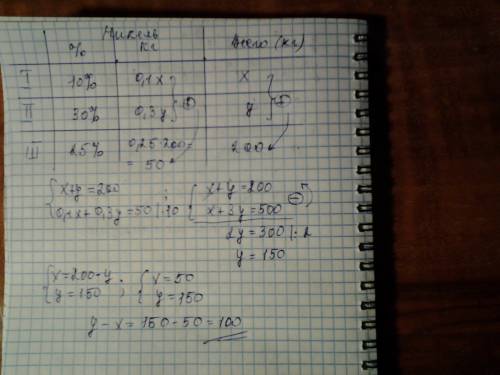 Никель
% кг Всего (кг)
I 10% 0,1x x
II 30% 0,3y y
III 25% 0,25·200= 200
= 50
{x+y=200 ; {x+y=200
0,1x+0,3y=50 |·10 x+3y=500
2y=300 |:2
y=150
{x=200-y ; {x=50
y=150 y=150
y-x=150-50=100